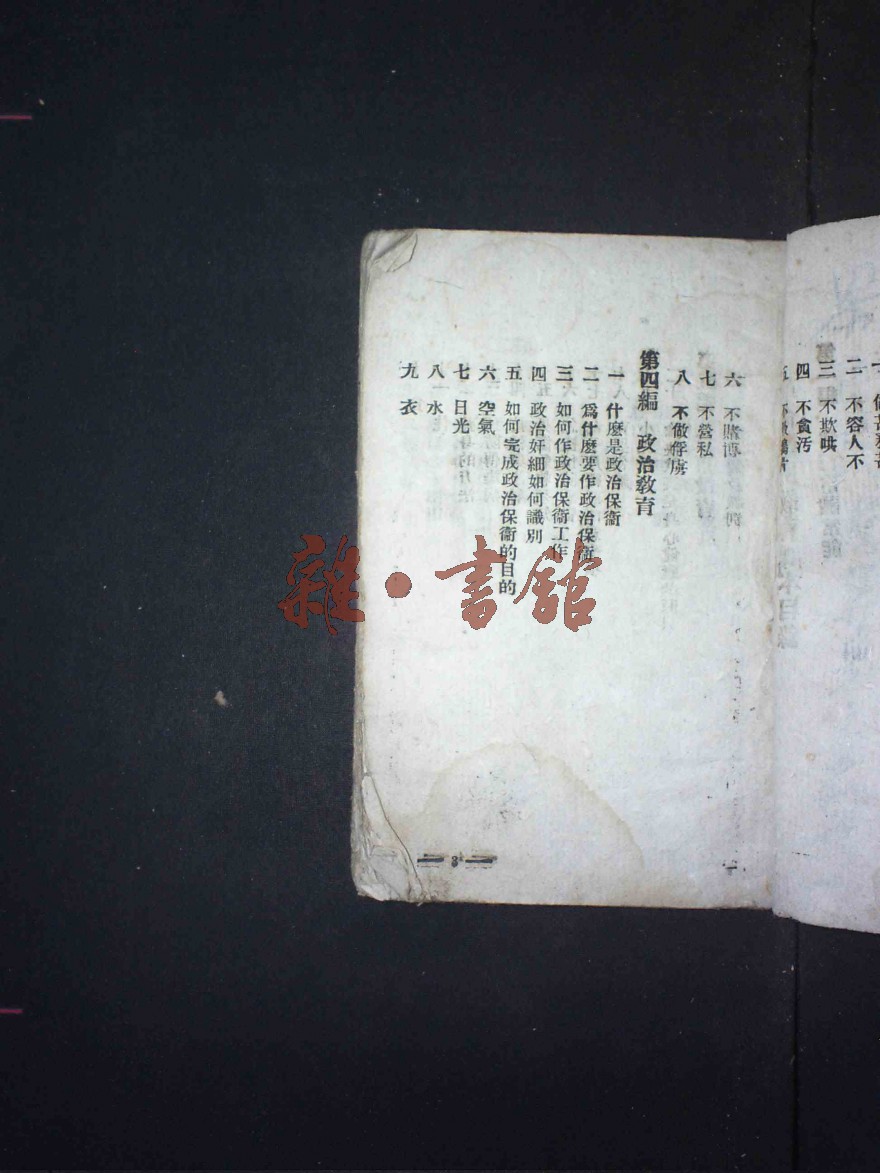 二 不容人不
三 不欺哄
四 不貪汚
六 不賭博
七 不營私
八 不做俘虜
第四編 政治教育
一 什麼是政治保衞
二 爲什麼要作政治保衞
三 如何作政治保衞工作
四 政治奸細如何識別
五 如何完成政治保衞的目的
六 空氣
七 日光
八 水
九 衣
8
雜·書舘